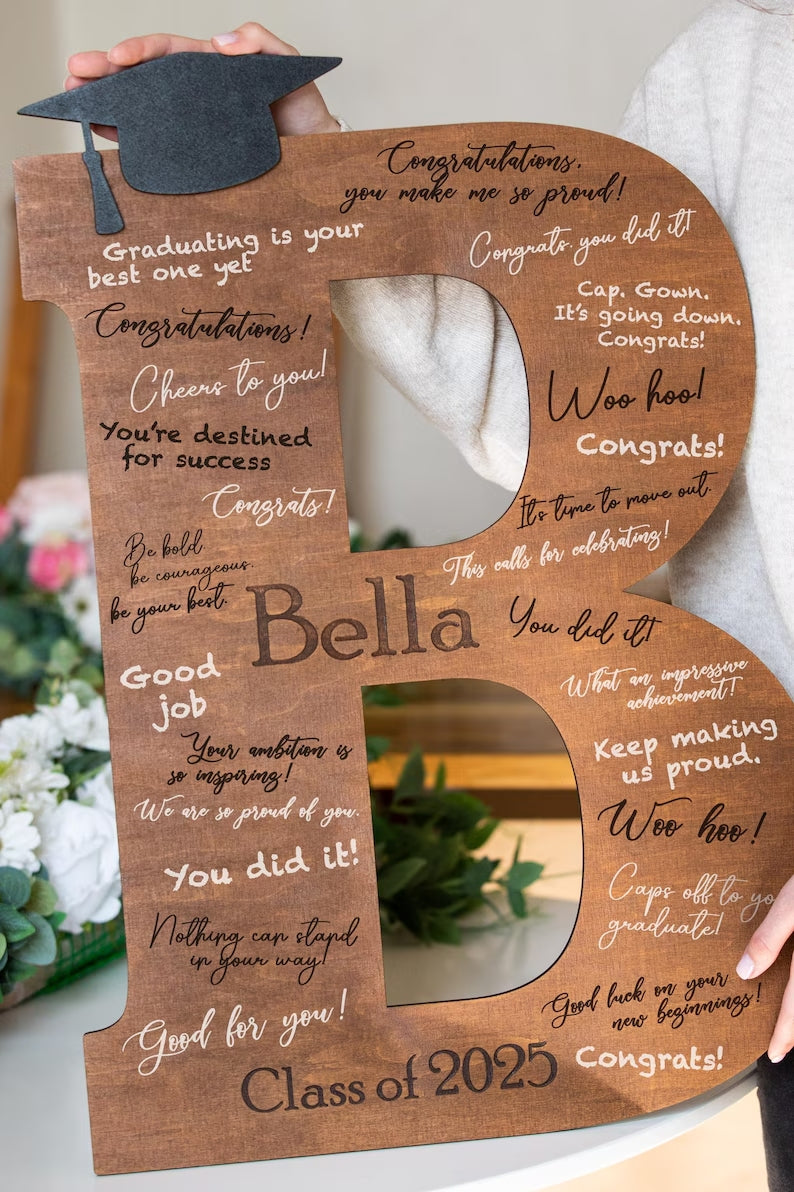 Congratulations,
you make me so proud!
Graduating is your
best one yet
Congrats, you did it!
Cap. Gown.
It's going down.
Congrats!
Congratulations!
Cheers to you!
Woo hoo!
You're destined
for success
Congrats!
Congrats!
It's time to move out.
Be bold.
be courageous.
be your best.
This calls for celebrating!
Bella
You did it!
Good
job
What an impressive
achievement!
Your ambition is
so inspiring!
Keep making
us proud.
We are so proud of you.
Woo hoo!
You did it!
Caps off to yo
graduate!
Nothing can stand
in your way!
Good luck on your
new beginnings!
Good for you!
Class of 2025
Congrats!